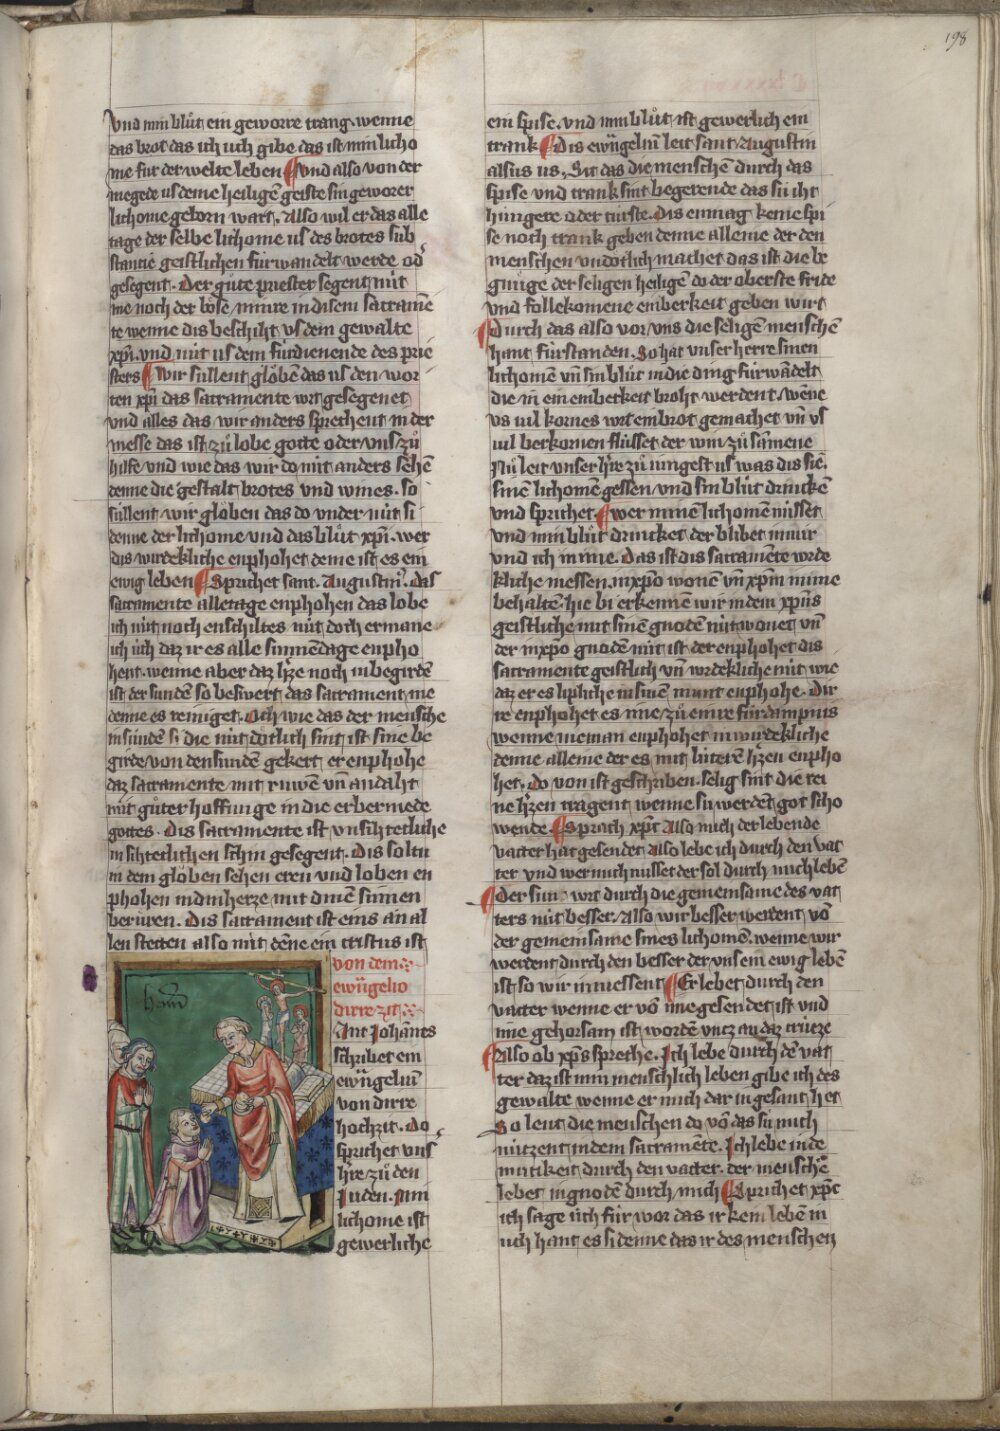 198
vnd min blůt ein geworre trang. wenne
das brot das ich úch gibe das ist min licho
me fur der welte leben ¶ vnd also von der
megede us deme heiligē geiste sin geworer
lichome geborn wart. Also wil er das alle
tage der selbe lichome us des brotes sub
stancie geistlichen fúrwandelt werde od᾽
gesegent. Der gůte priester segent nút
me noch der bôse minre in disem sacramē
te wenne dis beschiht vs dem gewalte
xp̄i. vnd nút us dem fúrdienende des prie
sters ¶ wir súllent glôbē das us den wor
ten xp̄i das sacramente wrt gesegenet
vnd alles das wir anders sprechent in der
messe das ist zů lobe gotte oder vns zů
hilfe vnd wie das wir do nút anders sehē
denne die gestalt brotes vnd wines. so
súllent wir glôben das do vnder nút si
denne der lichome vnd das blůt xp̄i. wer
dis wirdekliche enphohet deme ist es ein
ewig leben ¶ Sprichet sant. Augustin᾽. das
sacramente alletage enphohen das lobe
ich nút noch enschiltes nút doch ermane
ich úch daz ir es alle sunnēdage enpho
hent. wenne aber daz h᾽ze noch in begirdē
ist der sunden so beswert das sacrament me
denne es reiniget. Och wie das der mensche
in súnden si die nút dôtlich sint ist sine be
girde von den sundē gekert er enphohe
daz sacramente mit ruwē vn̄ andaht
mit gůter hoffunge in die erbermede
gottes. Dis sacramente ist vnsihtekliche
in sihteclichen schin gesegent. Dis soltu
in dem glôben sehen eren vnd loben en
phohen in dinherze mit dinē sinnen
berúren. Dis sacrament ist eins an al
len stetten also nút dēne ein cristus ist
von dem
ewūgelio
dirre zit
Ant Johānes
schribet ein
ewūgeliū
von dirre
hochzit. Do
sprichet vns᾽
h᾽re zů den
Juden. Min
lichome ist
gewerliche
ein spise. vnd min blůt ist gewerlich ein
trank ¶ Dis ewūgeliū leit sant Augustin
alsus us. Sit das die menschē durch das
spise vnd trank sint begerende das sú iht
húngere oder túrste. Dis enmag keine spi
se noch trank geben denne alleine der den
menschen vndôtlich machet das ist die be
gnúge der seligen heiligē do der oberste fride
vnd follekomene einberkeit geben wirt
¶ Durch das also vor vns die seligē menschē
hant fúrstanden. So hat vnser herre sinen
lichomē vn̄ sin blůt in die ding fúrwādelt
die in ein einberkeit broht werdent. wēne
us uil kornes wrt ein brot gemachet vn̄ vs
uil berkornen flússet der win zů sāmene
Nů leit vnser h᾽re zů iungest us was dis sie.
sinē lichomē gessen vnd sin blůt drinckē
vnd sprichet. ¶ wer minen lichomē nússet
vnd min blůt drincket der blibet in mir
vnd ich in ime. Das ist dis sacramēte wrde
kliche niessen. in xp̄o wonē vn̄ xp̄m in ime
behaltē. hie bi erkennē wir in dem xp̄us
geistliche mit sinē gnodē nút wonet vn̄
der in xp̄o gnodē nút ist der enphohet dis
sacramente geistlich vn̄ wrdekliche nút wie
daz er es lipliche in sinē munt enphohe. Dir
re enphohet es me zů eime fúrdampnis
wenne nieman enphohet in wirdekliche
denne alleine der es mit luterē h᾽zen enpho
het. do von ist geschriben. selig sint die rei
ne h᾽zen tragent wenne sú werdēt got scho
wende. ¶ Sprach xp̄c Also mich der lebende
vatter hat gesendet also lebe ich durch den vat
ter vnd wer mich nússet der sol durch mich lebē
¶ Der sun wrt durch die gemeinsame des vat
ters nút besser. Also wir besser werdent vō
der gemeinsame sines lichomē. wenne wir
werdent durch den besser der vns ein ewig lebē
ist so wir in niessent ¶ Er lebet durch den
vatter wenne er vō ime gesendet ist vnd
ime gehorsam ist wordē vntz an daz crúeze
¶ Also ob xp̄s spreche. Ich lebe durch dē vat
ter daz ist min menschlich leben gibe ich des
gewalte wenne er mich dar in gesant het
So lent die menschen do vō das sú mich
nútzent in dem sacramēte. Ich lebe in de
mútikeit durch den vatter. der mensche
lebet in gnodē durch mich ¶ Sprichet xp̄c
ich sage úch fúr wor das ir kein lebē in
uch hant es si denne das ir des menschen